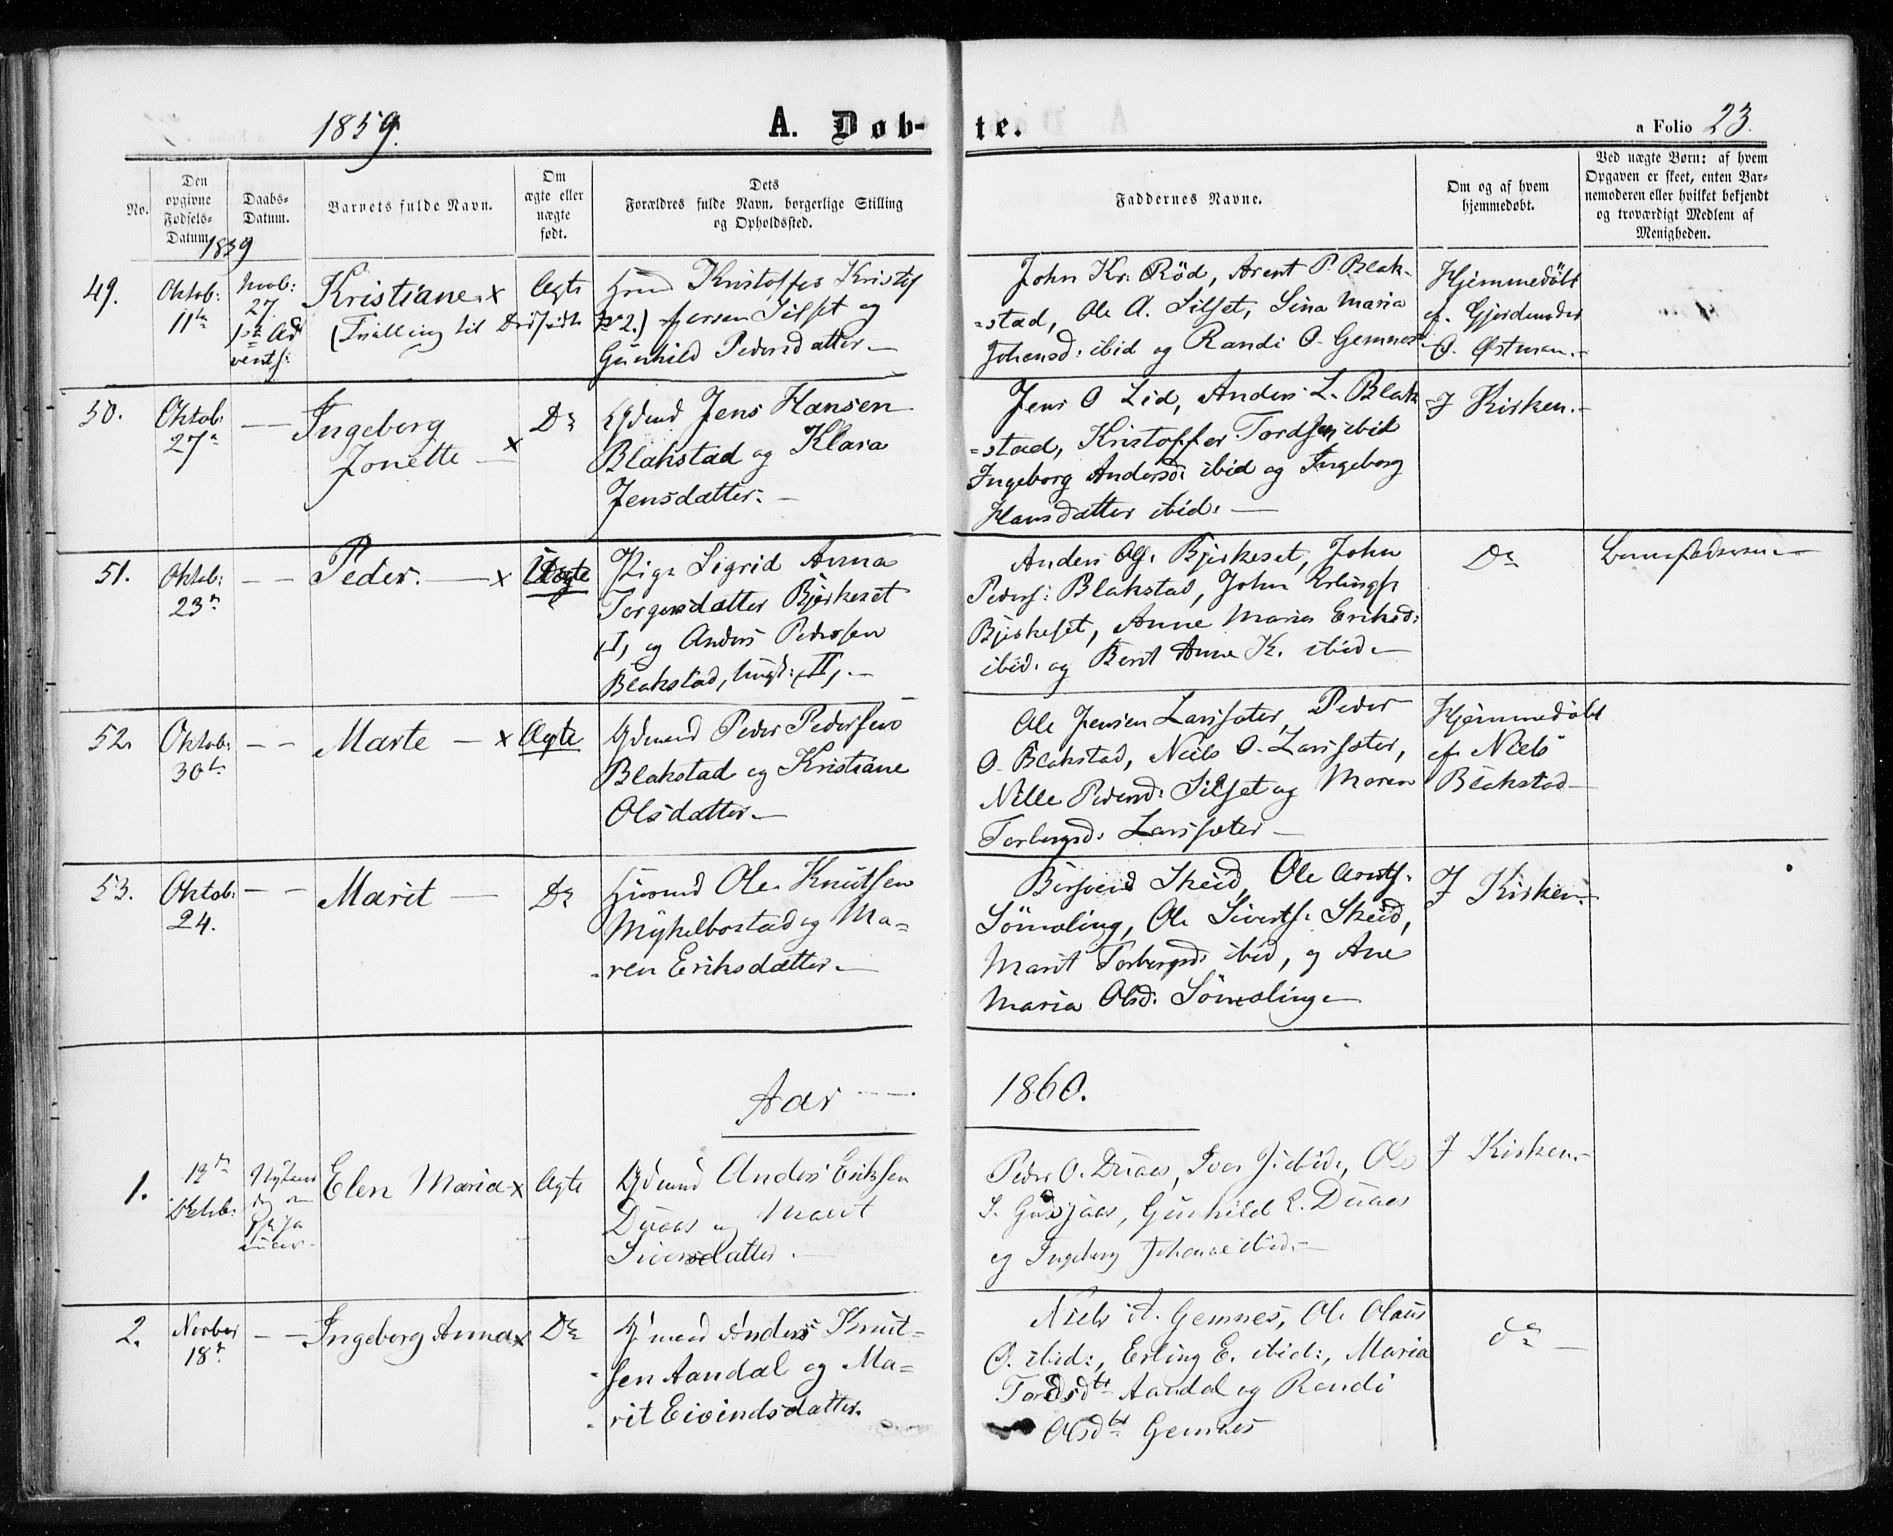 1859. A. Døb- te. a Folio 23.
No.
Den opgivne Fødsels-Datum.
Daabs-Datum.
Barnets fulde Navn.
Om ægte eller uægte født.
Dets Forældres fulde Navn, borgerlige Stilling og Opholdssted.
Faddernes Navne.
Om og af hvem hjemmedøbt.
Ved uægte Børn: af hvem Opgaven er skeet, enten Barnemoderen eller hvilket bekjendt og troværdigt Medlem af Menigheden.
1859
49.
Oktob:
11te
Novb:
27
1ste Ad
vents:
Kristiane x
(Tvilling til
Ægte
Kristoffer Kristof
fersen Silset og
Gunhild Pedersdatter.
John Kr. Röd, Arent P. Blak-
=stad, Ole A. Silset, Lina Maria
Johensd: ibid og Randi O. Gemnes
Hjemmedöbt
af Gjerdmoder
O. Østman.
50.
Oktob:
27
— —
Ingeborg
Jonette — x
Do
Gdmd Jens Hansen
Blakstad og Klara
Jensdatter. —
Jens O Lid, Anders L. Blak
=stad, Kristoffer Tordsen, ibid
Ingeborg Andersd: ibid og Ingeborg
Hansdatter ibid. —
I Kirken. —
51.
Oktob:
23
— —
Peder. — x
Uægte
Pige Sigrid Anna
Torgersdatter Bjerkeset
(I, og Anders Pedersen
Blakstad, Ungk: (II, —
Anders Ols: Bjerkeset, John
Peders: Blakstad, John Erlings:
Bjerkeset, Anne Maria Eriksd:
ibid. og Berit Anne K. ibid.
Do
Barnefaderen —
52.
Oktob:
30te
— —
Marte — x
Ægte
Gdmand Peder Pedersen
Blakstad og Kristiane
Olsdatter. —
Ole Jensen Larssæter, Peder
O. Blakstad, Niels O. Larssæter,
Nille Pedersd: Silset og Maren
Torbergsd: Larssæter —
Hjemmedöbt
af Niels
Blakstad —
53.
Oktob:
24.
— —
Marit —
Do
Husmd Ole Knutsen
Myklebostad og Ma=
ren Eriksdatter. —
Skeid, Ole Arnts:
Sömöling, Ole Siverts: Skeid,
Marit Torbergsd: ibid, og Ane
Maria Olsd: Sömöling —
I Kirken. —
Aar — 1860.
1.
Nytaars
dag
Elen Maria x
Ægte
Gdmand Anders Eriksen
Duaas og Marit
Siversdatter. —
Peder O. Duaas, Iver ibid., Ole
S. Gusjaas, Gunhild E. Duaas
og Ingeborg Johanne ibid. —
I Kirken. —
2.
Novber
18
— —
Ingeborg Anna x
Do
Gdmand Anders Knut-
sen Aandal og Ma-
rit Eivindsdatter.
Niels A. Gemnes, Ole Olaus
O. ibid:, Erling E. ibid:, Maria
Tordsdtr Aandal og Randi
Olsdtr Gemnes
do —